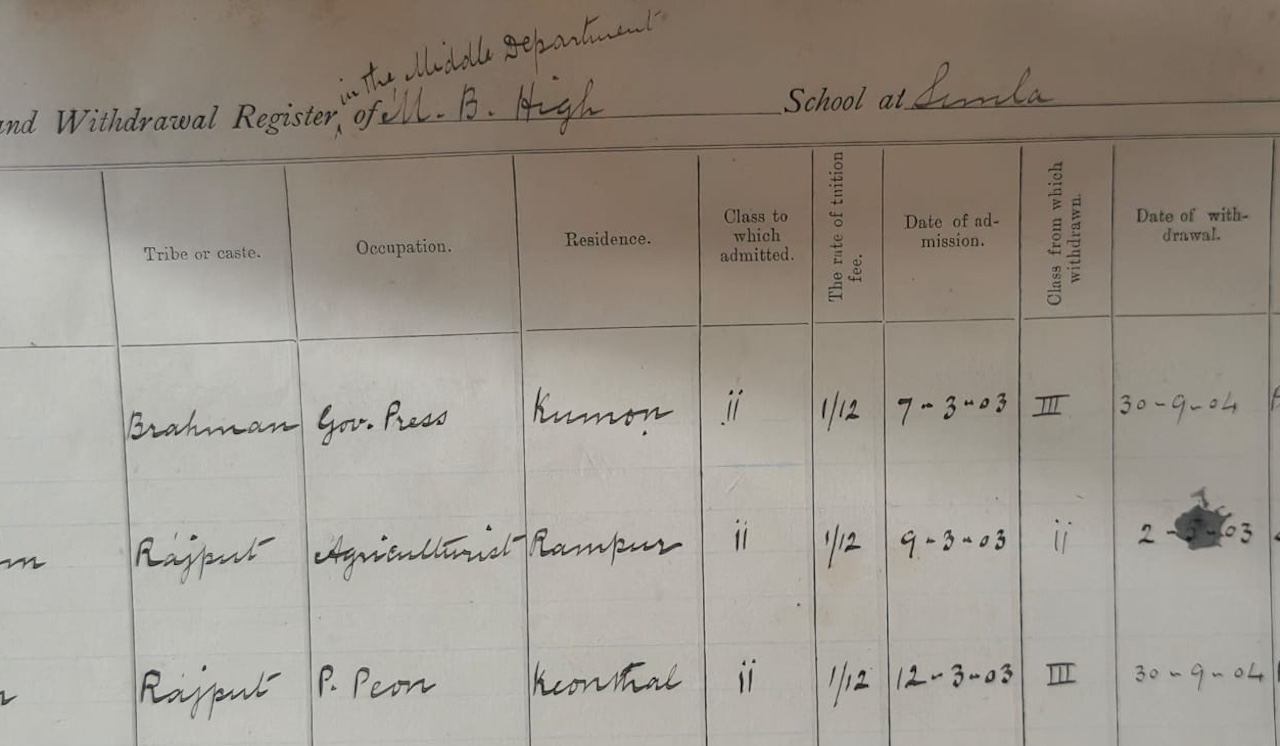 in the Middle Department
and Withdrawal Register, of M. B. High School at Simla
Tribe or caste. Occupation. Residence. Class to which admitted. The rate of tuition fee. Date of ad-mission. Class from which withdrawn. Date of with-drawal.
Brahman Gov. Press Kumon ii 1/12 7-3-03 III 30-9-04
Rájput Agriculturist Rampur ii 1/12 9-3-03 ii 2- -03
Rájput P. Peon Keonthal ii 1/12 12-3-03 III 30-9-04